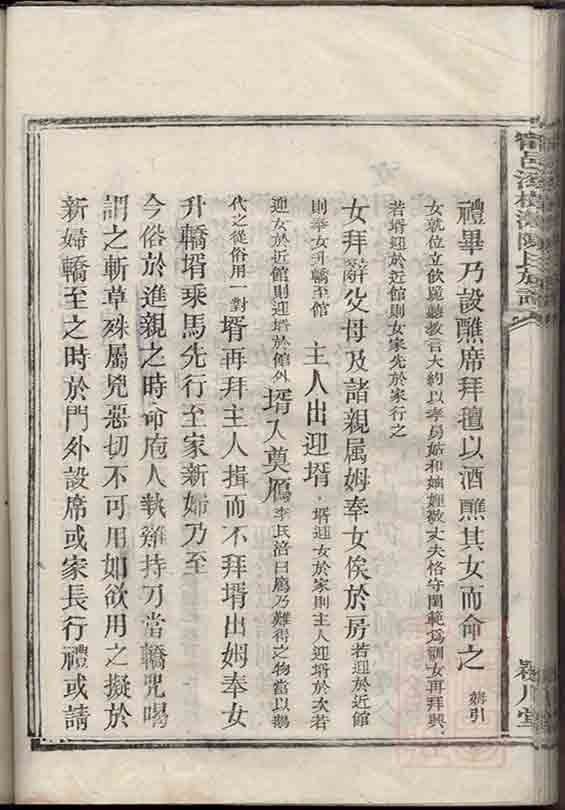 禮畢乃設醮席拜壇以酒醮其女而命之 姆引
女就位立飲跪聽教言大約以孝舅姑和妯娌敬丈夫恪守閨範爲訓女再拜興
若壻迎於近館則女家先於家行之
女拜辭父母及諸親属姆奉女俟於房 若迎於近館
則奉女升轎至館 主人出迎壻 壻迎女於家則主人迎壻於次若
迎女於近館則迎壻於館外 壻入奠鴈 李氏涪曰鴈乃難得之物當以鵝
代之從俗用一對 壻再拜主人揖而不拜壻出姆奉女
升轎壻乘馬先行至家新婦乃至
今俗於進親之時命庖人執雞持刀當轎咒喝
謂之斬草殊屬兇惡切不可用如欲用之擬於
新婦轎至之時於門外設席或家長行禮或請
甯邑 歐陽氏族譜
卷八 堂